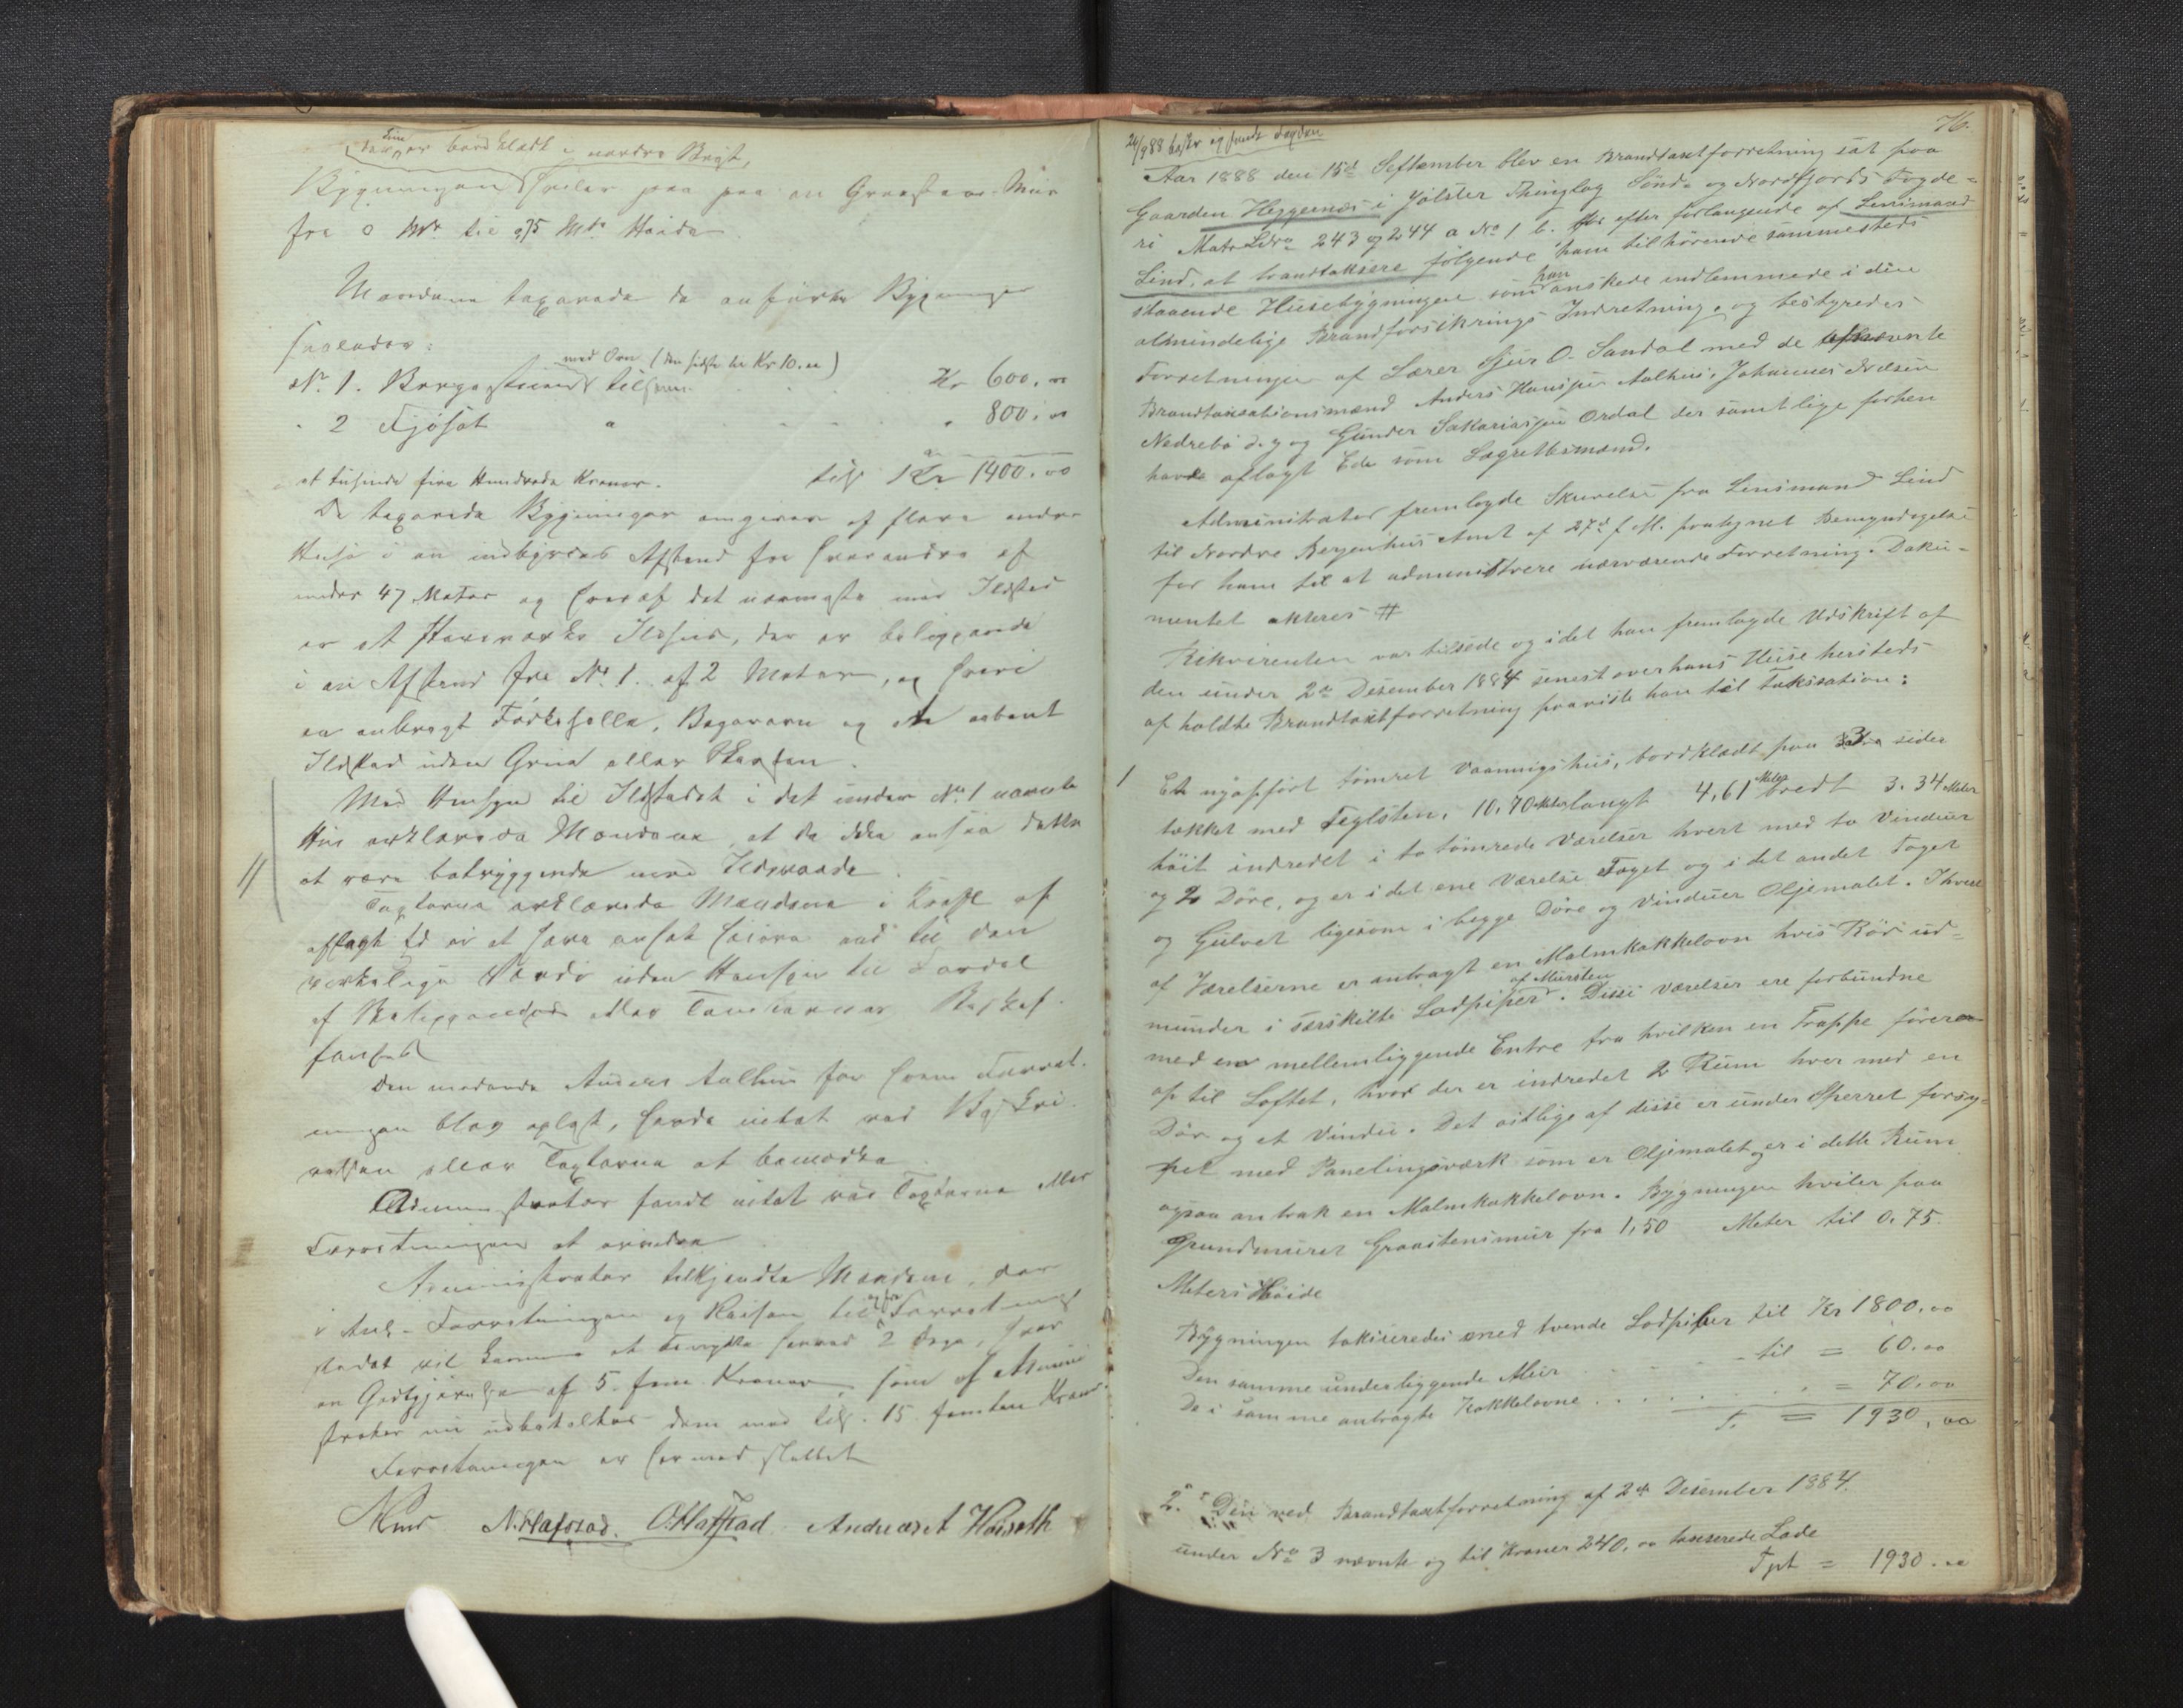 er bordklædt i nordre Bryst,
Bygningen hviler paa paa en Graastens Muur
fra 0 Mtr til 0,75 Mtr Høide.
Mændene taxerede de anførte Bygninger
saaledes:
No 1. Borgestuen med Ovn (den sidste til Kr 10.00) tilsammen Kr 600.00
" 2 Fjøset " " 800.00
et tusinde fire Hundrede Kroner. tils Kr 1400.00
De taxerede Bygninger omgives af flere andre
Huse i en indbyrdes Afstand fra hverandre af
under 47 Meter og hvoraf det nærmeste med Ildsted
er et Ildhus, der er beliggende
i en Afstand fra No 1. af 2 Meter, og hvori
er anbragt Bagerovn og et aabent
Ildsted uden Grue eller Skorsten.
Med Hensyn til Ildstedet i det under No 1 nævnte
Hus erklærede Mændene, at de ikke ansaa dette
at være betryggende mod Ildsvaade.
Taxterne erklærede Mændene i Kraft af
aflagt Ed ei at have ansat høiere end til den
virkelige Værdi uden Hensyn til Fordel
af Beliggenhed eller
Den mødende Anders Aalhus for hvem Forret-
ningen blev oplæst, havde intet ved Beskri-
velsen eller Taxterne at bemærke.
Administrator fandt intet ved Taxterne eller
Forretningen at erindre.
Administrator tilkjendte Mændene, der
i Anl. Forretningen og Reisen til og fra Forretnings
stedet vil komme at benytte herved 2 Dage, hver
en Godtgjørelse af 5 fem Kroner, som af Admini
strator nu udbetaltes dem med tils. 15 femten Kroner.
Forretningen er hermed sluttet
N. Hafstad. O. Hafstad Andreas A
76.
24/9 88
Aar 1888 den 15de September blev en Brandtaxtforretning sat paa
Gaarden Heggenæs i Jölster Thinglag Sönd- og Nordfjords Fogde-
ri Matr Löbno 243 og 244 a No 1 b. efter forlangende af Lensmand
Lind, at brandtaksere følgende ham tilhörende sammesteds
staaende Husebygninger som han önskede indlemmede i den
almindelige Brandforsikrings Indretning, og bestyredes
Forretningen af Lærer Sjur O. Sandal med de opnævnte
Brandtaxationsmænd Anders Hansen Aalhus, Johannes Nilsen
Nedrebö d. y og Gunder Sakariassen Ordal der samtlige forhen
havde aflagt Ede som Lagrettesmænd.
Administrator fremlagde Skrivelse fra Lensmand Lind
til Nordre Bergenhus Amt af 27de f. M. paategnet Bemyndigelse
for ham til at administrere nærværende Forretning. Doku-
mentet akteres #
Rekvirenten var tilstede og idet han fremlagde Udskrift af
den under 2de Desember 1884 senest over hans Huse hersteds
af holdte Brandtaxtforretning paaviste han til taksation:
1 Et nyopfört tömret Vaaningshus, bordklædt paa 3 sider
tækket med Teglsten, 10,70 Meter langt 4,61 Meter bredt 3,34 Meter
höit indredet i to tömrede Værelser hvert med to Vinduer
og 2 Döre, og er i det ene Værelse Taget og i det andet Taget
og Gulvet ligesom i begge Döre og Vinduer Oljemalet. I hvert
af Værelserne er anbragt en Malmkakkelovn hvis Rör ud-
munder i særskilte Lodpiper af Mursten. Disse Værelser ere forbundne
med en mellemliggende Entre fra hvilken en Trappe förer
op til Loftet, hvor der er indredet 2 Rum hver med en
Dör og et Vindu. Det östlige af disse er under Sperret forsy-
net med Panelingsværk som er Oljemalet og er i dette Rum
ogsaa anbrak en Malmkakkelovn. Bygningen hviler paa
Grundmuret Graastensmur fra 1,50 Meter til 0,75
Meters Höide
Bygningen takseredes med tvende Lodpiper til Kr 1800.00
Den samme underliggende Mur . . . til = 60.00
De i samme anbragte Kakkelovne . . . . = 70.00
T. = 1930,00
2. Den ved Brandtaxtforretning af 2de Desember 1884
under No 3 nævnte og til Kroner 240.00 takserede Lade
Tpt = 1930.00